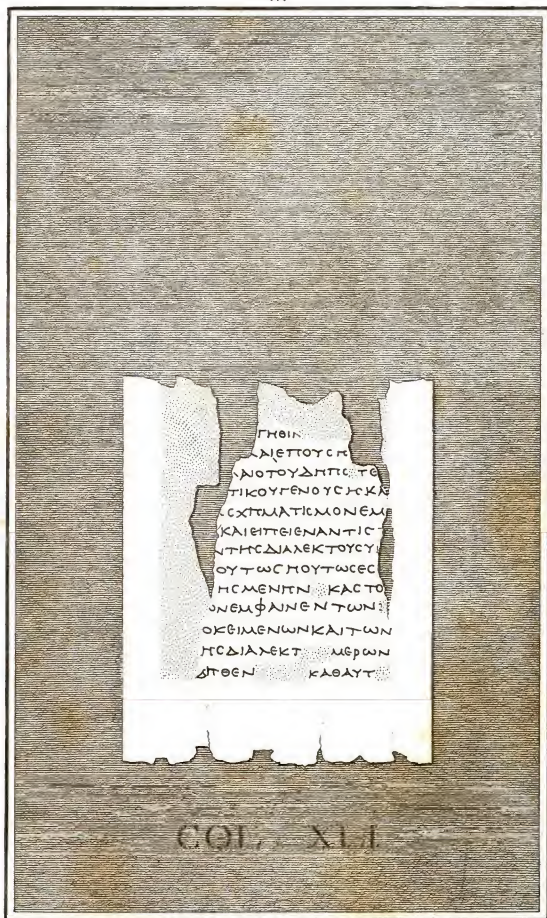 ΓΗΘΙΝ
ΑΙΕΠΟΥϹΗ
ΛΙΟΤΟΥΔΗΠϹ ΤΕ
ΤΙΚΟΥΓΕΝΟΥϹΗΚΑ
ϹΧΗΜΑΤΙϹΜΟΝΕΜ
ΚΑΙΕΙΠΕΙΕΝΑΝΤΙϹΤ
ΝΤΗϹΔΙΑΛΕΚΤΟΥϹΥ
ΟΥΤΩϹΗΟΥΤΩϹΕϹ
ΗϹΜΕΝΠΝ ΚΑϹΤΟ
ΟΝΕΜΦΑΙΝΕΝΤΩΝ
ΟΚΕΙΜΕΝΩΝΚΑΙΤΩΝ
ΗϹΔΙΑΛΕΚΤ ΜΕΡΩΝ
ΔΗΘΕΝ ΚΑΘΑΥΤ
COL. XLI